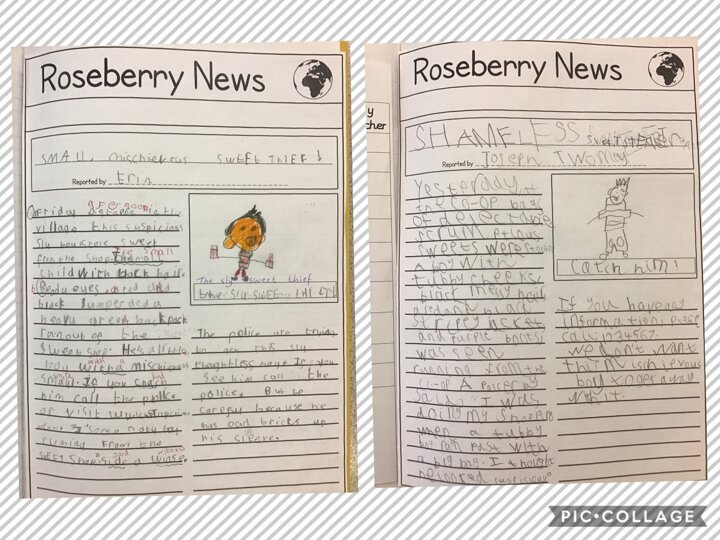 Roseberry News
SMALL mischievous SWEET THIEF !
Reported by Erin
afternoon
village this suspicious
sly
from the shop. The small
child with black hair,
eyes, red and
black jumper and a
heavy green back pack
ran out of the
Sweet Shop. He's a little
with a mischievous
smile. If you
him call the police
or visit
running from the
sweet shop" said a witness.
The sly sweet thief
The police are trying
to get this sly
thoughtless
if you
see him call the
police. But be
careful because he
has bad tricks up
his sleeve.
ly
cher
Roseberry News
SHAMELESS
Reported by Joseph
Yesterday at
the co-op bags
of delectable
scrumptious
sweets were stolen
a boy with
tubby cheeks
black messy hair
a red and black
strippy jacket
and purple boots
was seen
running from the
co-op. A passerby
said "I was
doing my shopping
when a tubby
boy ran past with
a big bag. I thought
he looked suspicious"
catch him!
If you have any
information, please
call 1234567.
We don't want
this mischievous
boy to get away
with it.
PIC•COLLAGE